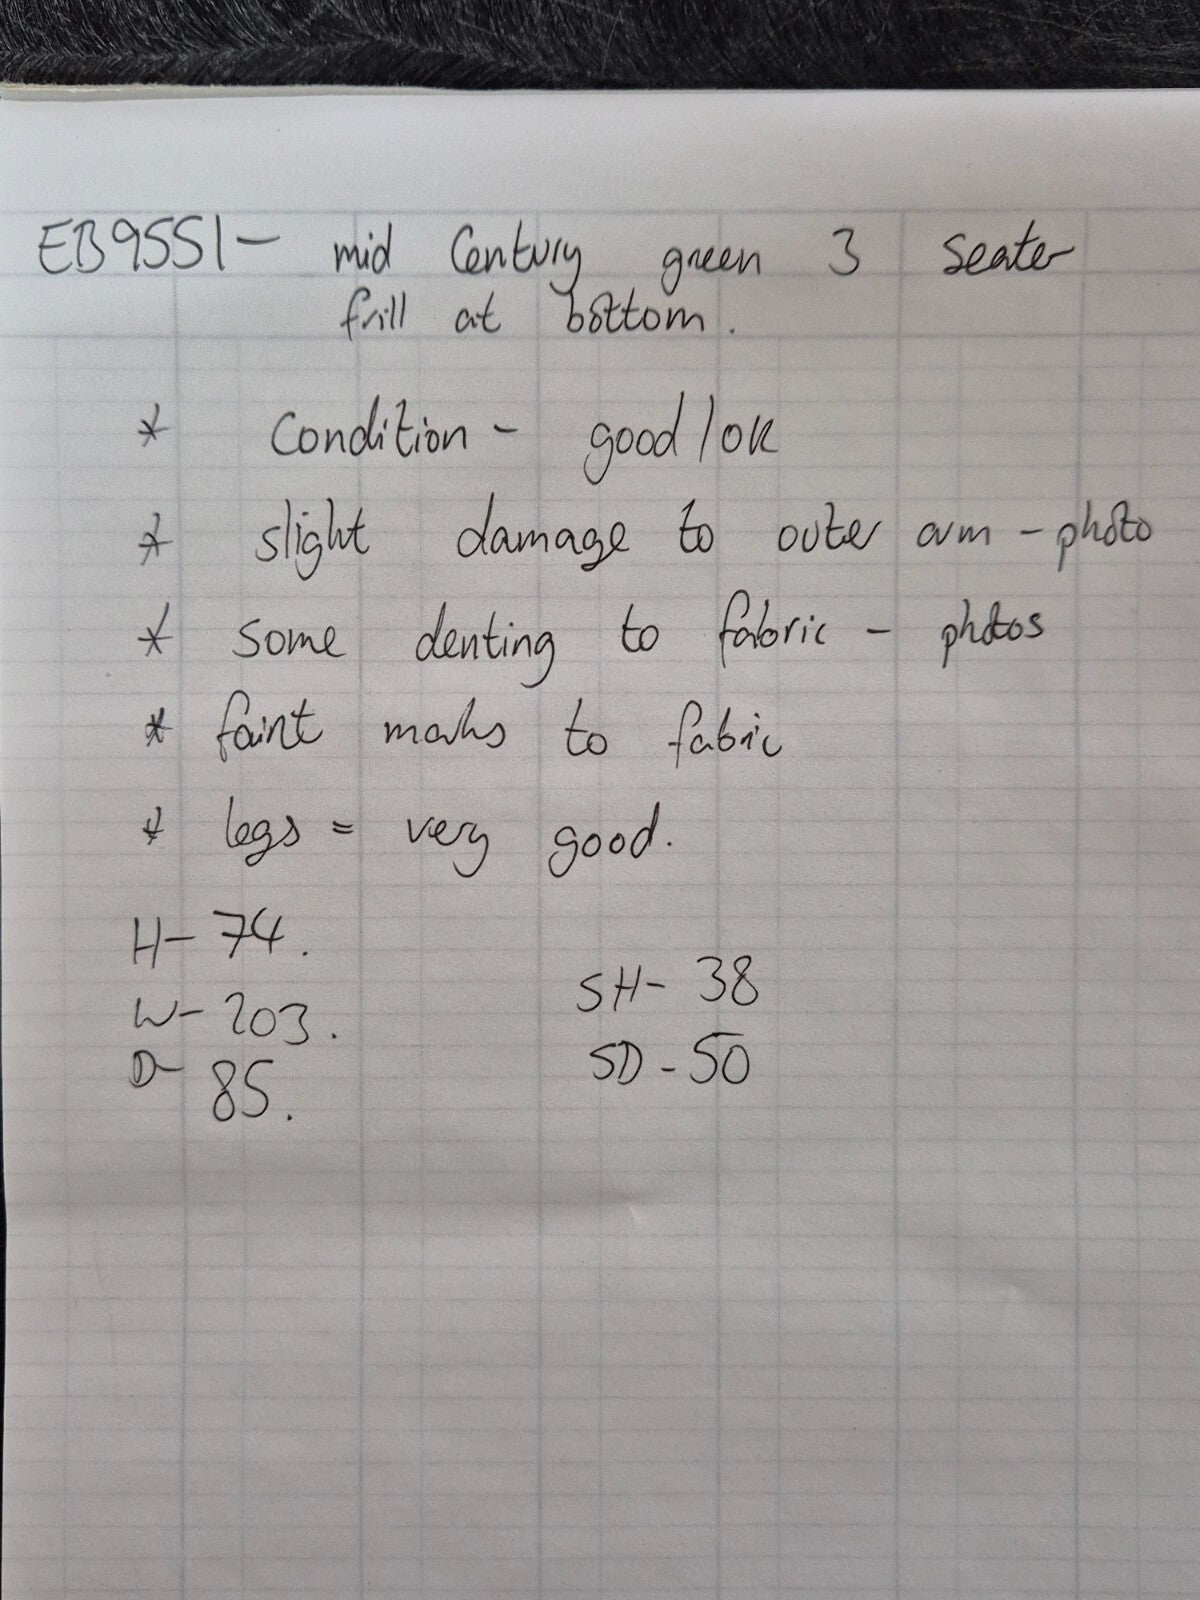 EB9551 - mid Century green 3 Seater
frill at bottom.
* Condition - good/ok
* slight damage to outer arm - photo
* some denting to fabric - photos
* faint marks to fabric
* legs = very good.
H- 74.
W- 203.
D- 85.
SH- 38
SD - 50